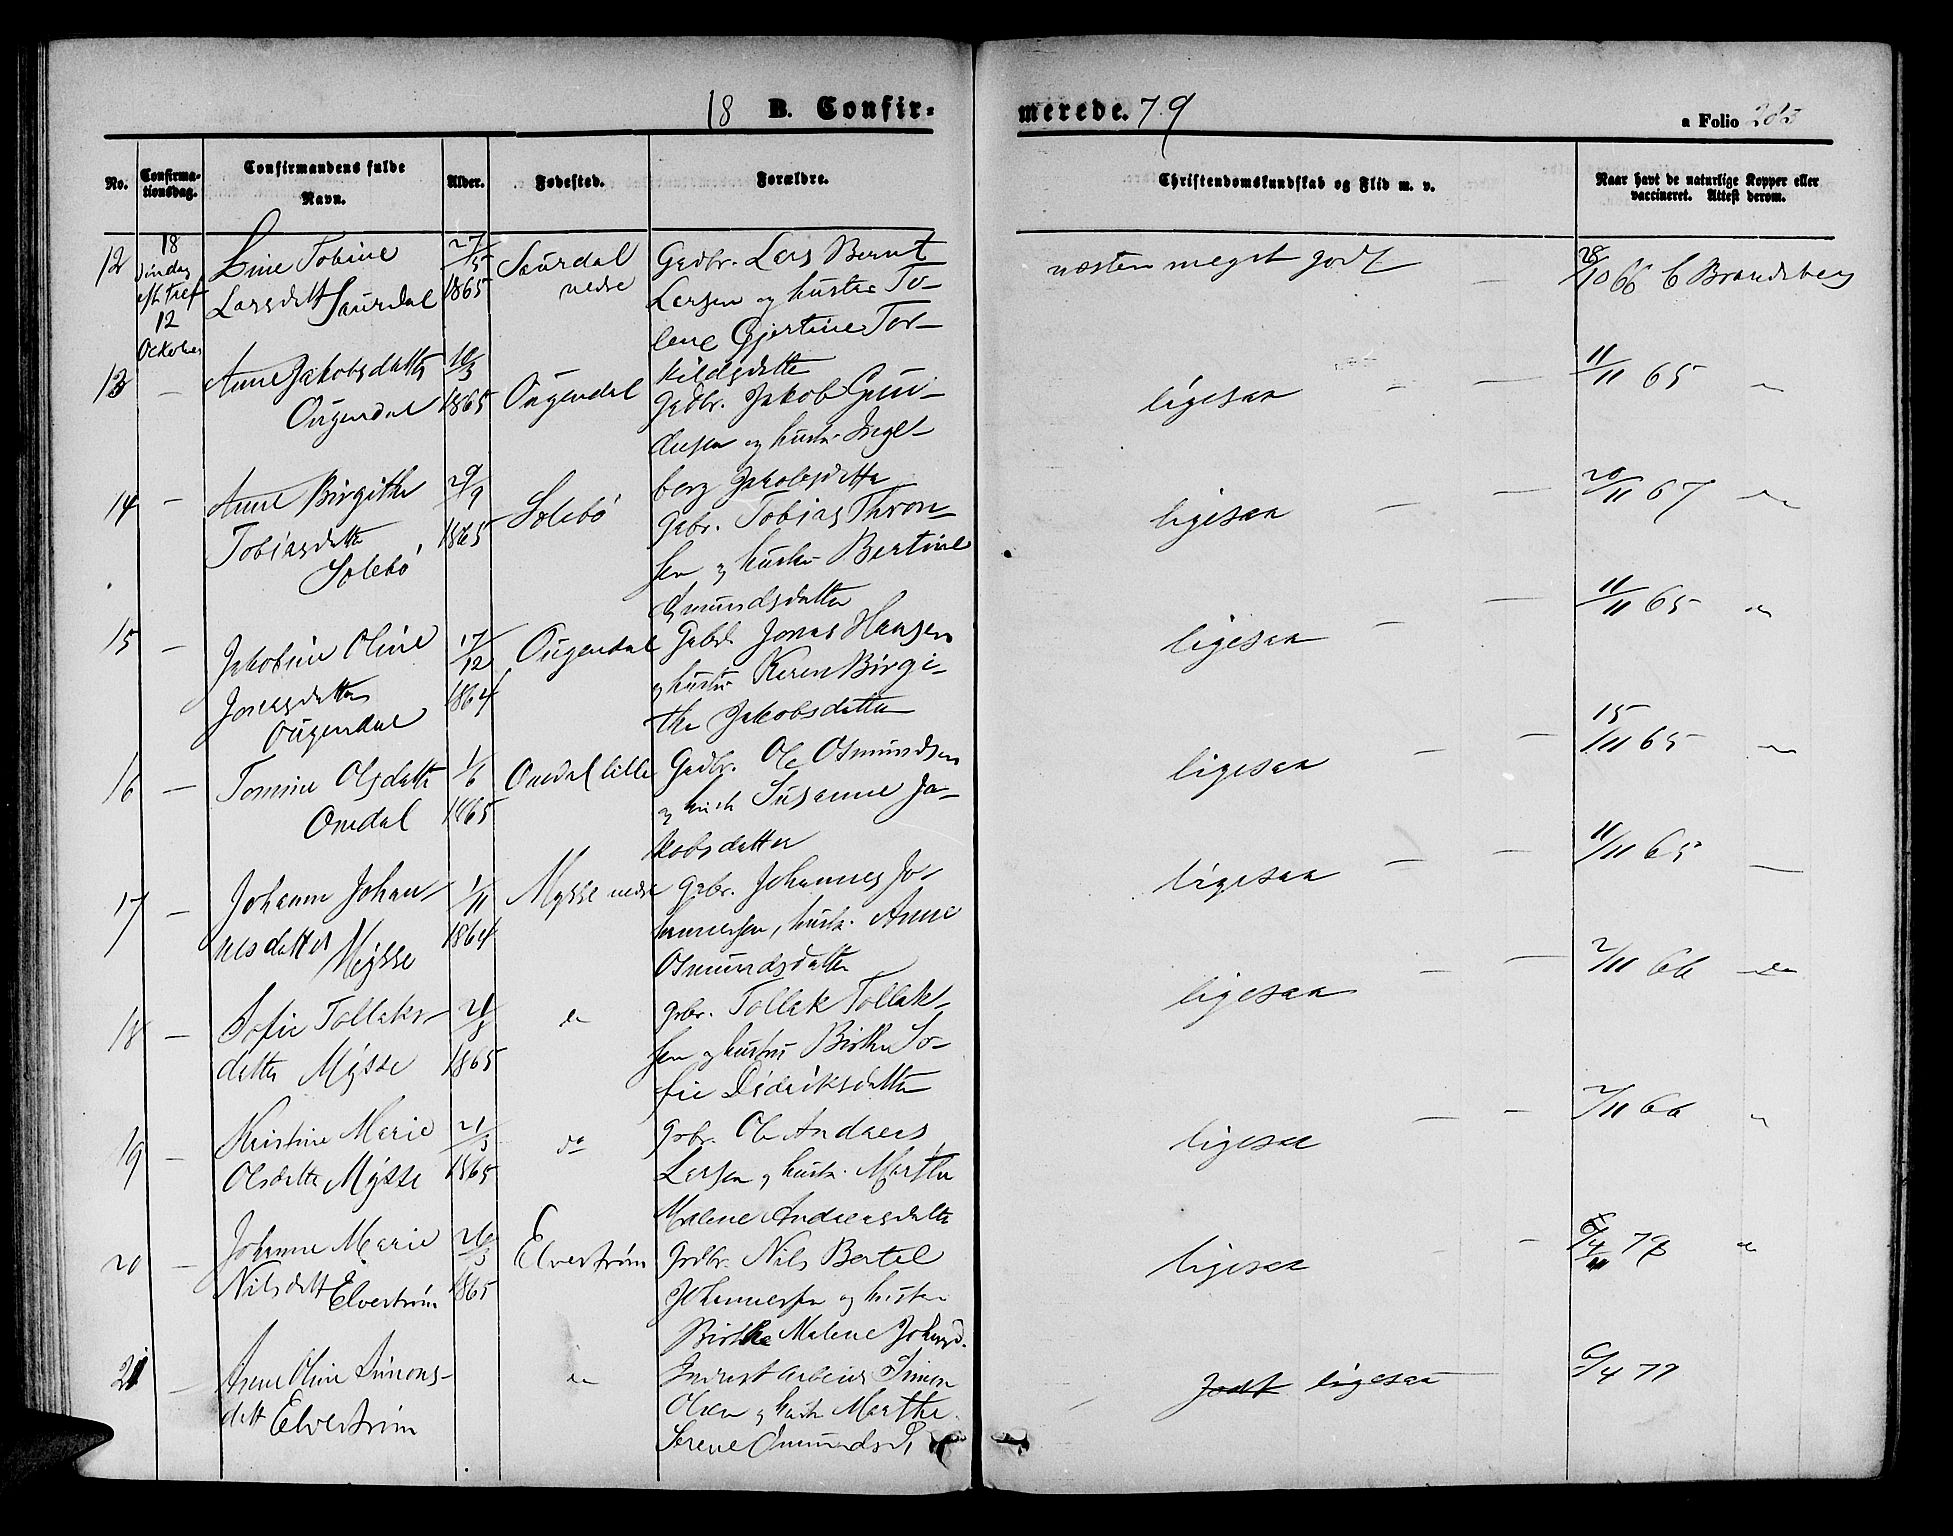 18 B. Confir-
merede. 79
a Folio
No.
Confirma-
tionsdag.
Confirmandens fulde
Navn.
Alder.
Fødested.
Forældre.
Christendomskundskab og Flid m. v.
Naar havt de naturlige Kopper eller
vaccineret. Attest derom.
12
18
Søndag
eft Tref
12
October
Line Tobine
Larsdatt Saurdal
27/5
1865
Saurdal
nedre
Grdbr. Lars Bernt
Larsen og hustru To-
lene Gjertine Tor-
kildsdatter
næsten meget godt —
28/10 66 C Brandsberg
13 —
Anne Jakobsdatter
Ougendal
10/3
1865
Ougendal
Grdbr. Jakob Gun-
dersen og hustr. Inge-
borg Jakobsdatter
ligesaa — —
11/11 65 "
14 —
Anne Birgithe
Tobiasdatter
Solebö
29/9
1865
Solebö
Grbr. Tobias Thron-
sen og hustru Bertine
Omundsdatter
ligesaa — —
20/11 67 da
15 —
Jakobine Oline
Jonasdatter
Ougendal
17/12
1864
Ougendal
Gabr. Jonas Hansen
og hustru Karen Birgi-
the Jakobsdatter
ligesaa — —
11/11 65 "
16 —
Tomine Olsdatter
Omdal
1/6
1865
Omdal lille
Grdbr. Ole Osmundsen
og hust Susanne Ja-
kobsdatter
ligesaa — —
15/11 65 "
17 —
Johanne Johan-
nesdatter
Mysse
1/11
1864
Mysse nedre
Grbr. Johannes Jo-
hannesen, hustr. Anne
Osmundsdatter
ligesaa — —
11/11 65 —
18 —
Sofie Tollaks-
datter Mysse
1865
da
grbr. Tollak Tollak-
sen og hustru Birthe So-
fie Didriksdatter
ligesaa — —
2/11 66 da
19 —
Kristine Marie
Olsdatter Mysse
21/3
1865
da
grbr. Ole Andreas
Larsen og hustr. Marthe
Malene Andreasdatter
ligesaa — —
2/11 66 "
20 —
Johanne Marie
Nilsdatt Elveström
26/3
1865
Elveström
grdbr. Nils Bertel
Johannesen og hustru
Birthe Malene Johansd.
ligesaa — —
21 —
Anne Oline Simons-
datt Elveström
da
Indust arbeider Simon
Olsen og hustr Marthe
Serene Omundsd.
godt ligesaa
6/4 79